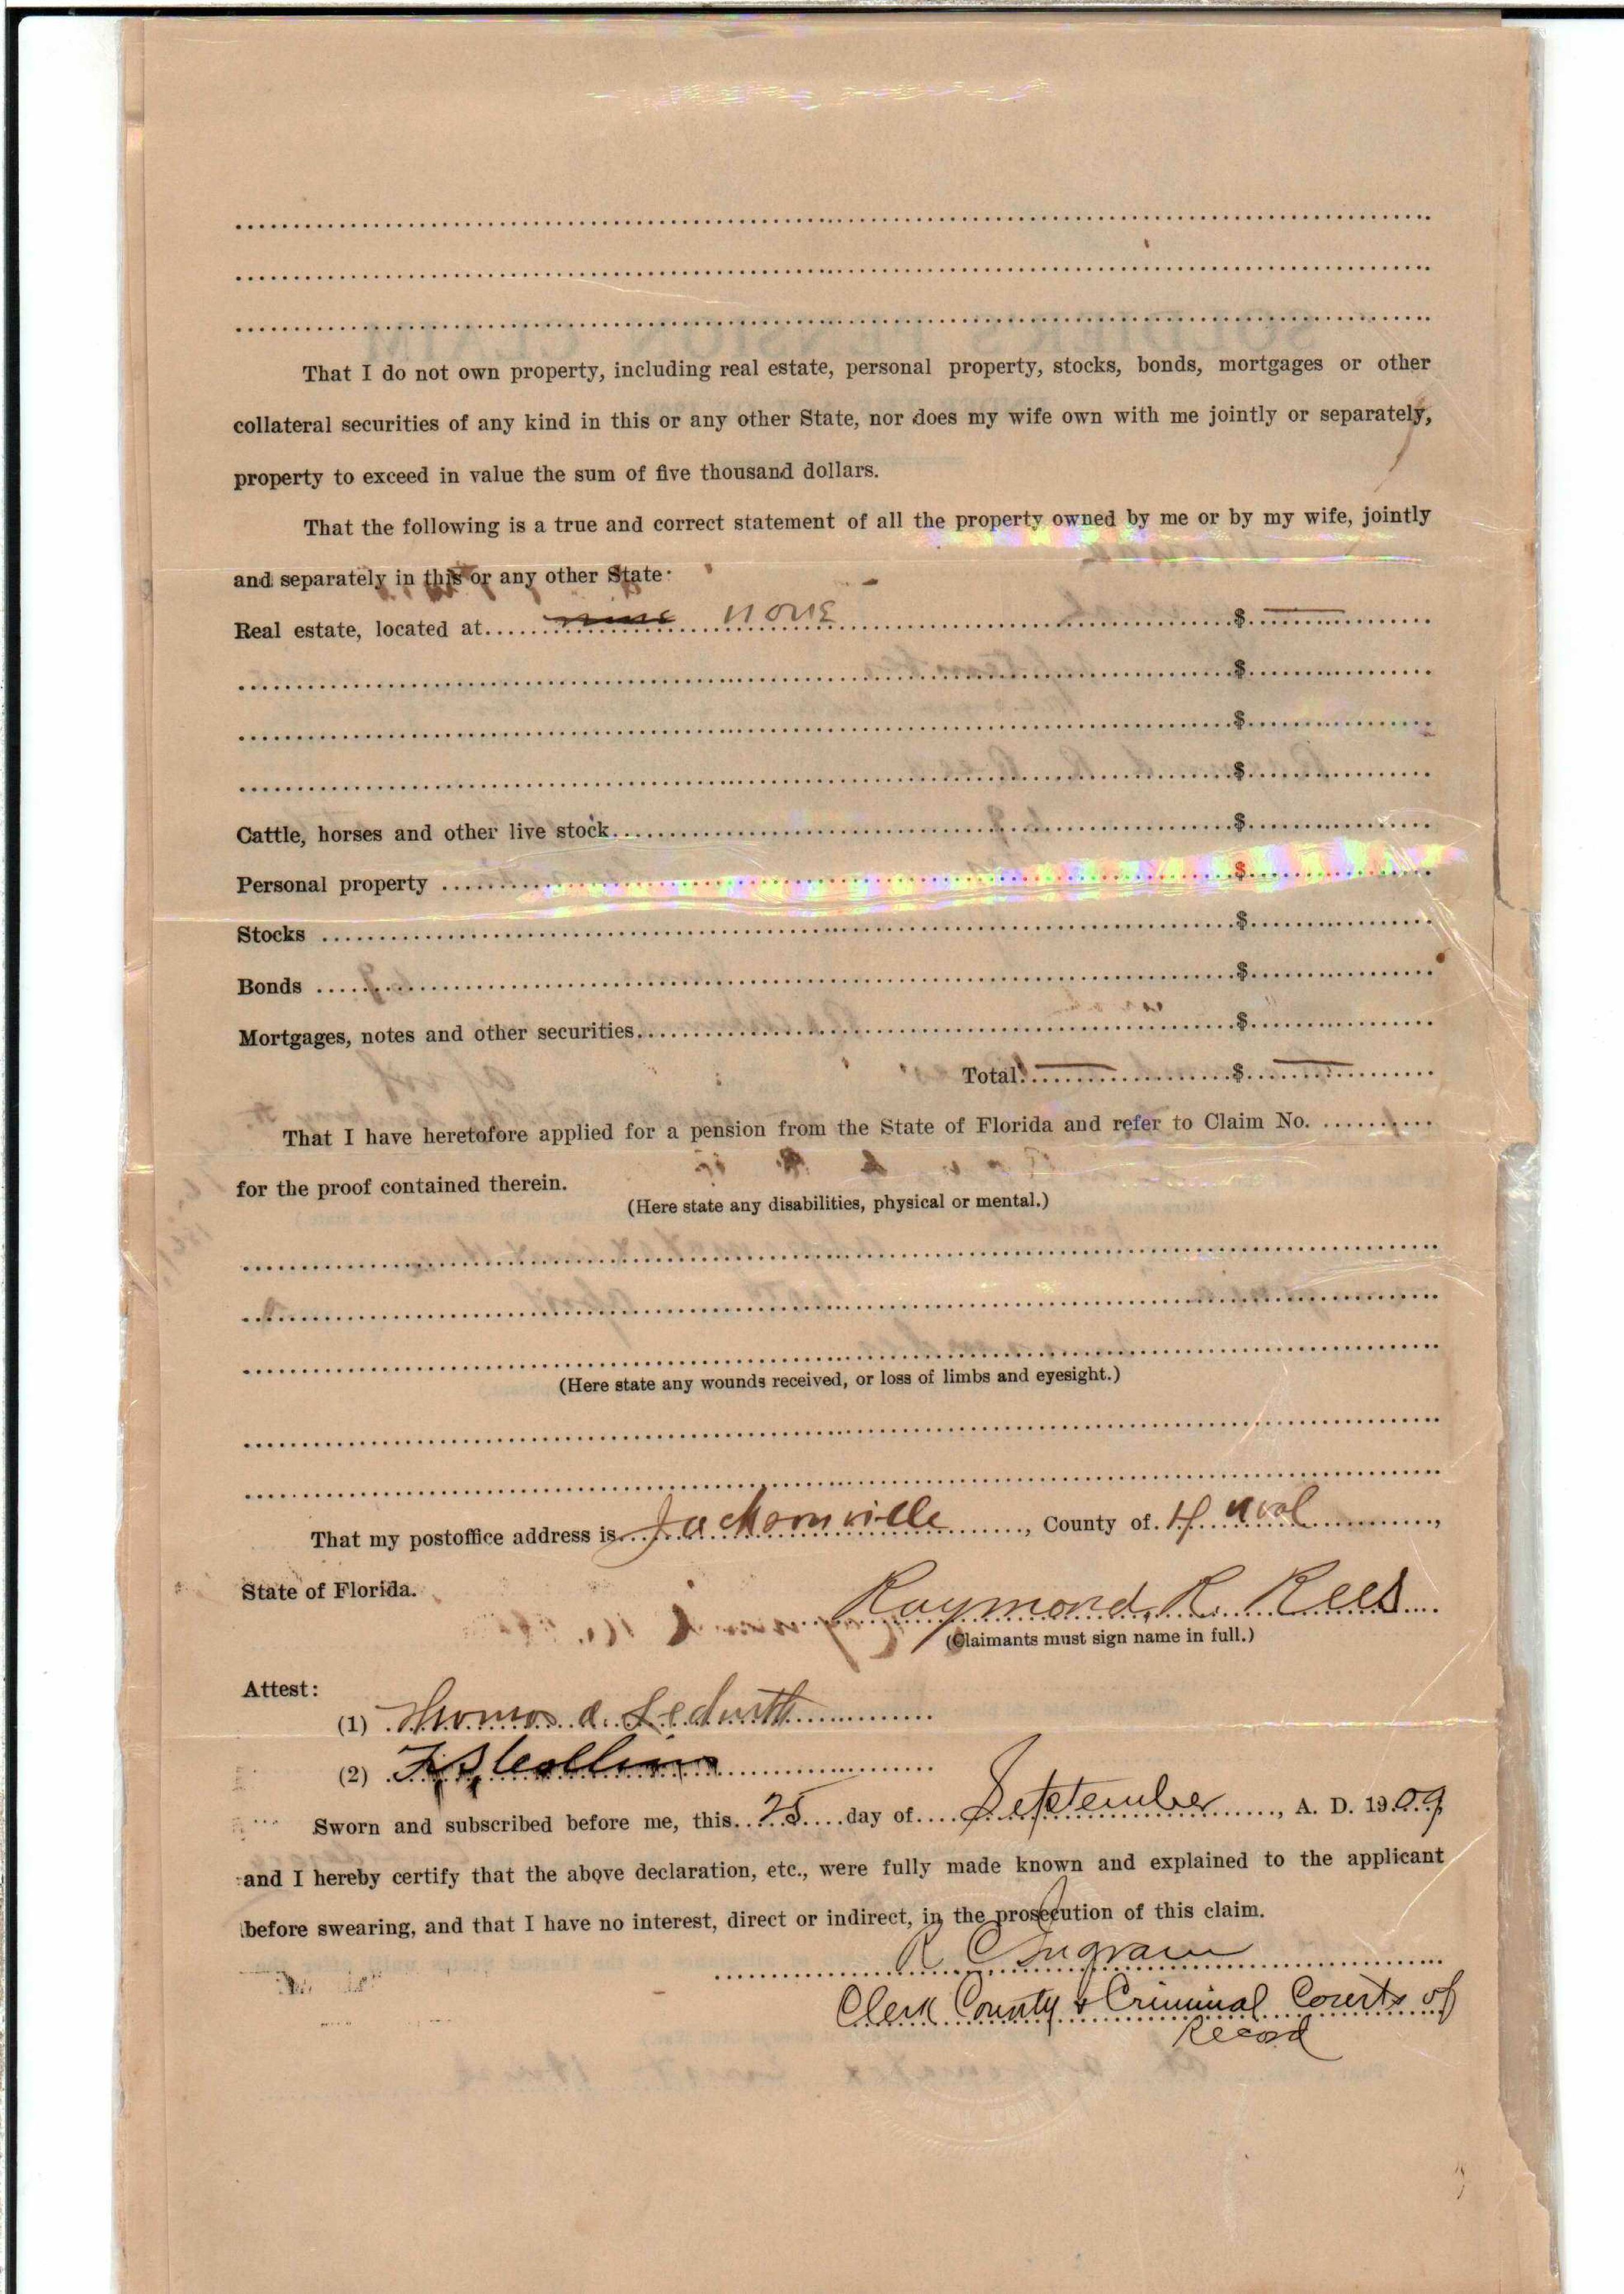 That I do not own property, including real estate, personal property, stocks, bonds, mortgages or other
collateral securities of any kind in this or any other State, nor does my wife own with me jointly or separately,
property to exceed in value the sum of five thousand dollars.
That the following is a true and correct statement of all the property owned by me or by my wife, jointly
and separately in this or any other State:
Real estate, located at none $
$
$
$
Cattle, horses and other live stock $
Personal property $
Stocks $
Bonds $
Mortgages, notes and other securities $
Total $
That I have heretofore applied for a pension from the State of Florida and refer to Claim No.
for the proof contained therein.
(Here state any disabilities, physical or mental.)
(Here state any wounds received, or loss of limbs and eyesight.)
That my postoffice address is Jacksonville, County of Duval,
State of Florida.
Raymond R. Rees
(Claimants must sign name in full.)
Attest:
(1) Thomas A. Ledwith
(2) Collins
Sworn and subscribed before me, this 25 day of September, A. D. 1909,
and I hereby certify that the above declaration, etc., were fully made known and explained to the applicant
before swearing, and that I have no interest, direct or indirect, in the prosecution of this claim.
Ingram
Clerk County & Criminal Courts of
Record